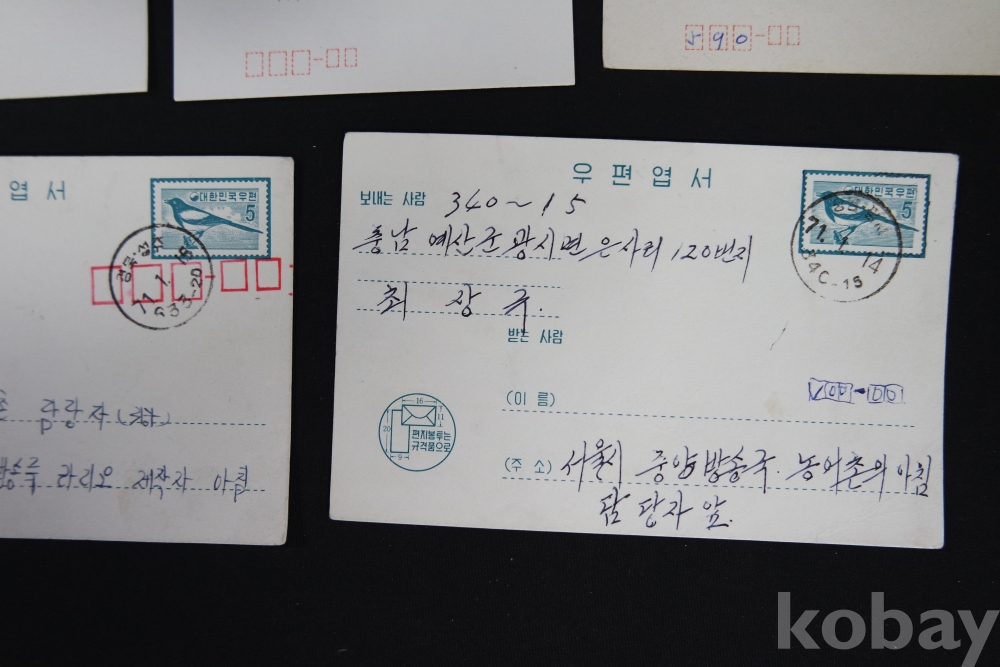 590-
엽서
대한민국우편
5
71.1.18
633-20
담당자
라디오 제작자 아침
우편엽서
보내는 사람 340~15
충남 예산군 광시면 은사리 120번지
최 장 구.
받는 사람
대한민국우편
5
71.4.14
34C-15
(이 름)
16
11
20
9
편지봉투는
규격품으로
(주 소) 서울시 중앙방송국. 농어촌의 아침
담당자 앞.
kobay